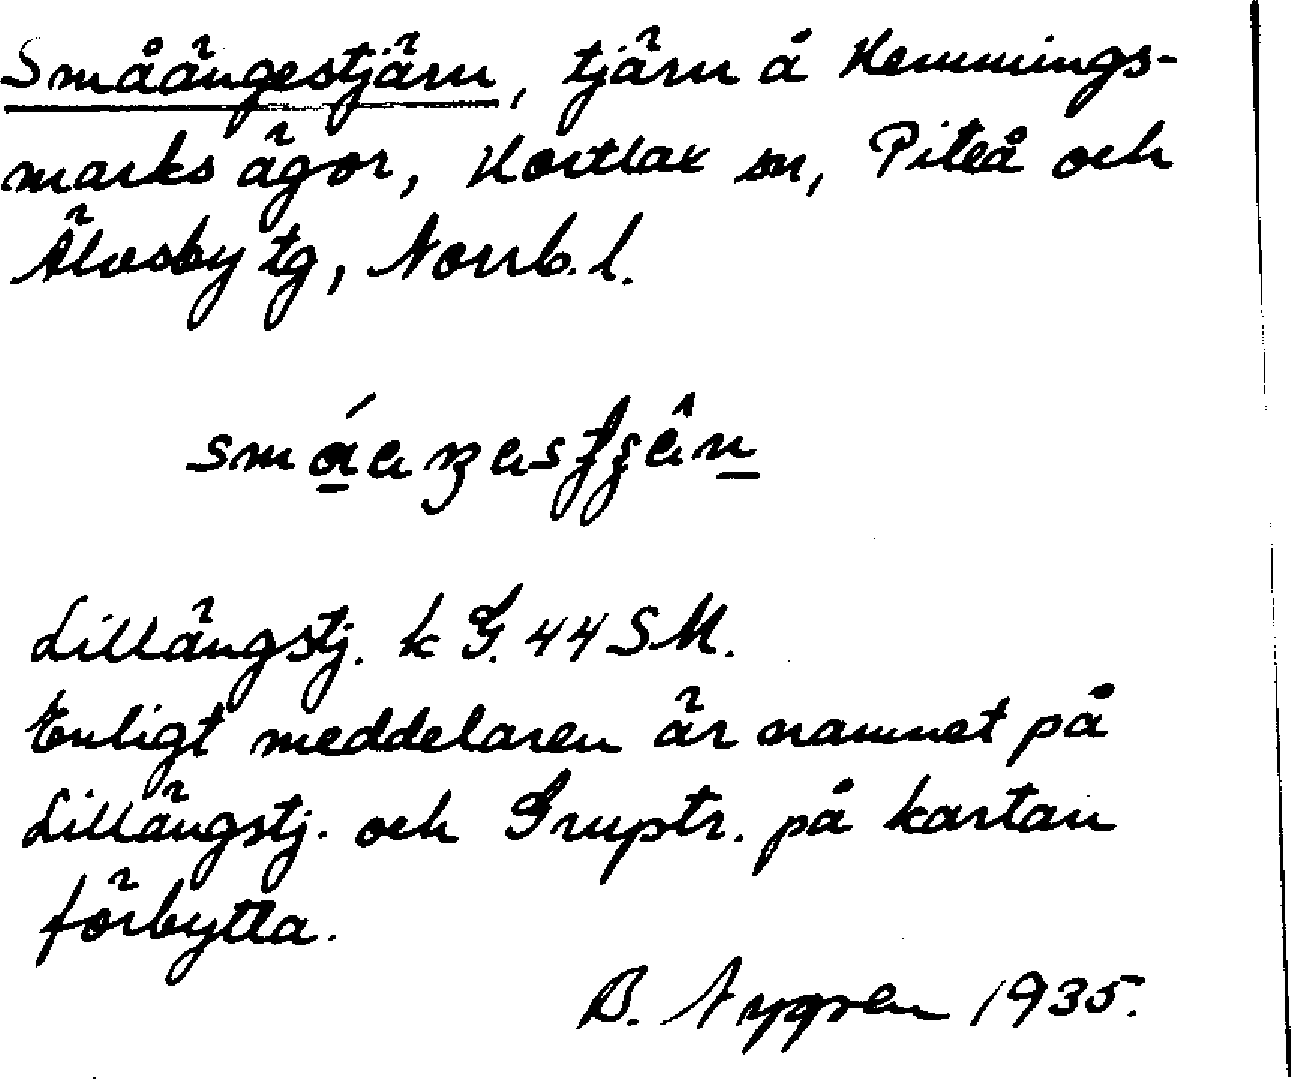 Småängestjärn, tjärn å Hemmings-
marks ägor, Hortlax sn, Piteå och
Älvsby tg, Norrb. l.
Lillängstj. k G. 44 SM.
Enligt meddelaren är namnet på
Lillängstj. och Gruptr. på kartan
förbytta.
B. Nygren 1935.